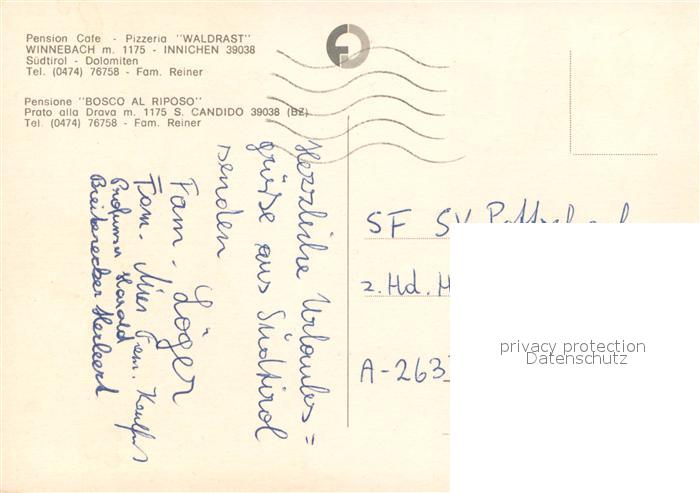 Pension Cafe - Pizzeria "WALDRAST"
WINNEBACH m. 1175 - INNICHEN 39038
Südtirol - Dolomiten
Tel. (0474) 76758 - Fam. Reiner
Pensione "BOSCO AL RIPOSO"
Prato alla Drava m. 1175 S. CANDIDO 39038 (BZ)
Tel. (0474) 76758 - Fam. Reiner
Herzliche Urlaubs=
grüße aus Südtirol
senden
Fam. Löger
Fam.
Harald
Herbert
SF SV
z. Hd. H
A-263
privacy protection
Datenschutz